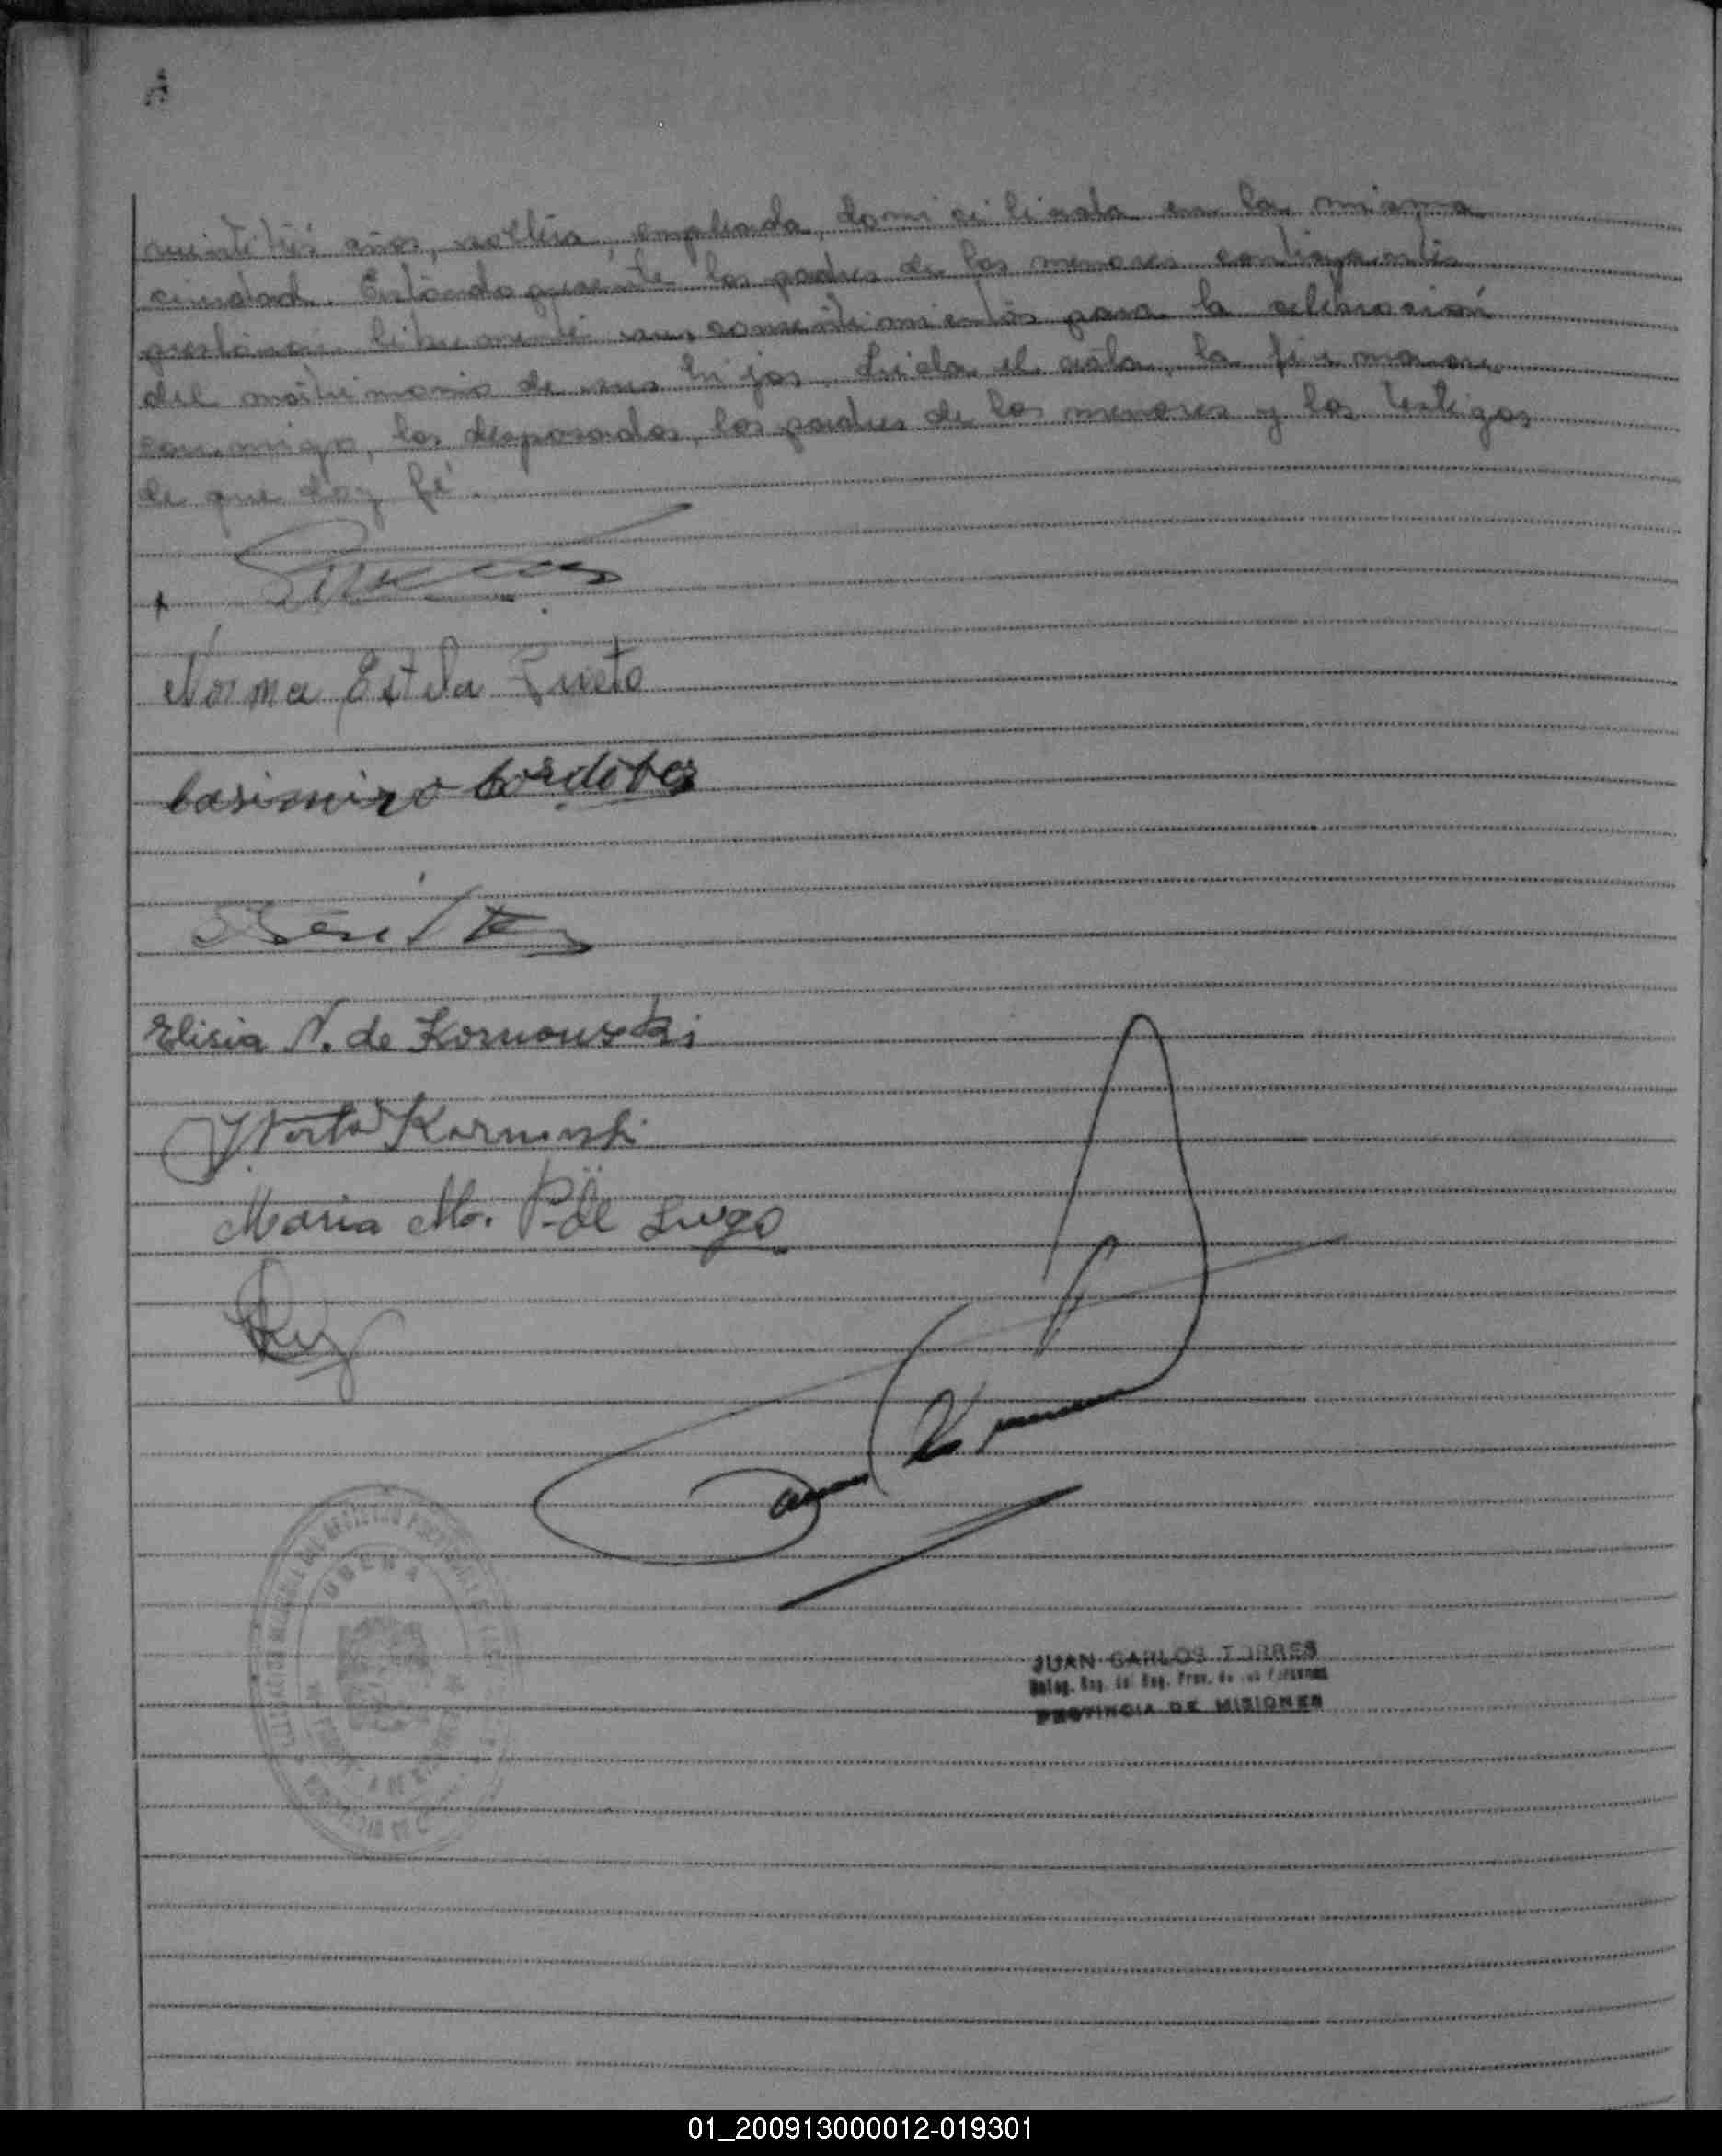 veintitrés años, soltera, empleada, domiciliada en la misma
ciudad. Estando presente los padres de los menores contrayentes
prestaron libremente sus consentimientos para la celebración
del matrimonio de sus hijos. Leída el acta, la firmaron
conmigo, los desposados, los padres de los menores y los testigos
de que doy fé.
Norma Estela
Casimiro Cordoba
Elisia N. de Kornowski
Kornowski
Maria M. P. de Lugo
OBERA
JUAN CARLOS TORRES
Deleg. Reg. del Reg. Prov. de las Personas
PROVINCIA DE MISIONES
01_200913000012-019301